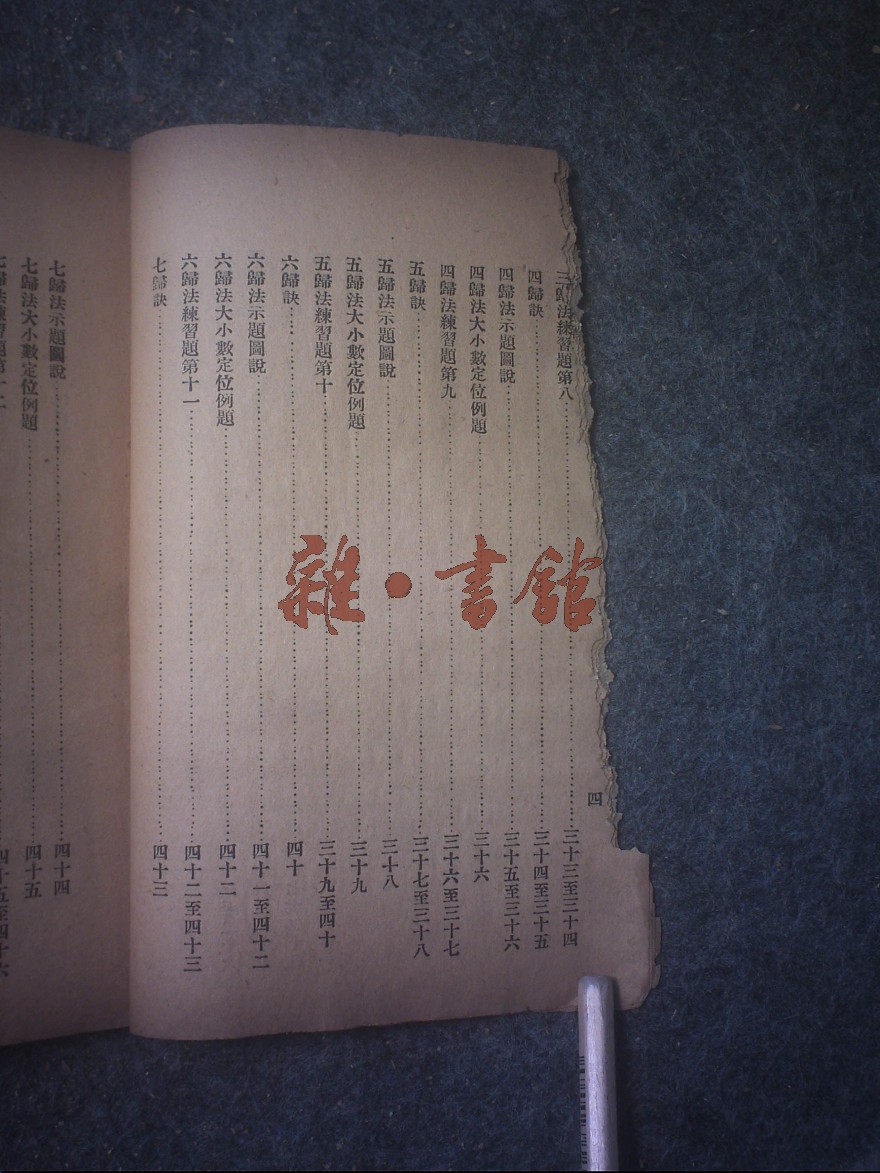 三歸法練習題第八……三十三至三十四
四歸訣……三十四至三十五
四歸法示題圖說……三十五至三十六
四歸法大小數定位例題……三十六
四歸法練習題第九……三十六至三十七
五歸訣……三十七至三十八
五歸法示題圖說……三十八
五歸法大小數定位例題……三十九
五歸法練習題第十……三十九至四十
六歸訣……四十
六歸法示題圖說……四十一至四十二
六歸法大小數定位例題……四十二
六歸法練習題第十一……四十二至四十三
七歸訣……四十三
四
七歸法示題圖說……四十四
七歸法大小數定位例題……四十五
七歸法練習題第十二……四十五至四十六
雜·書館